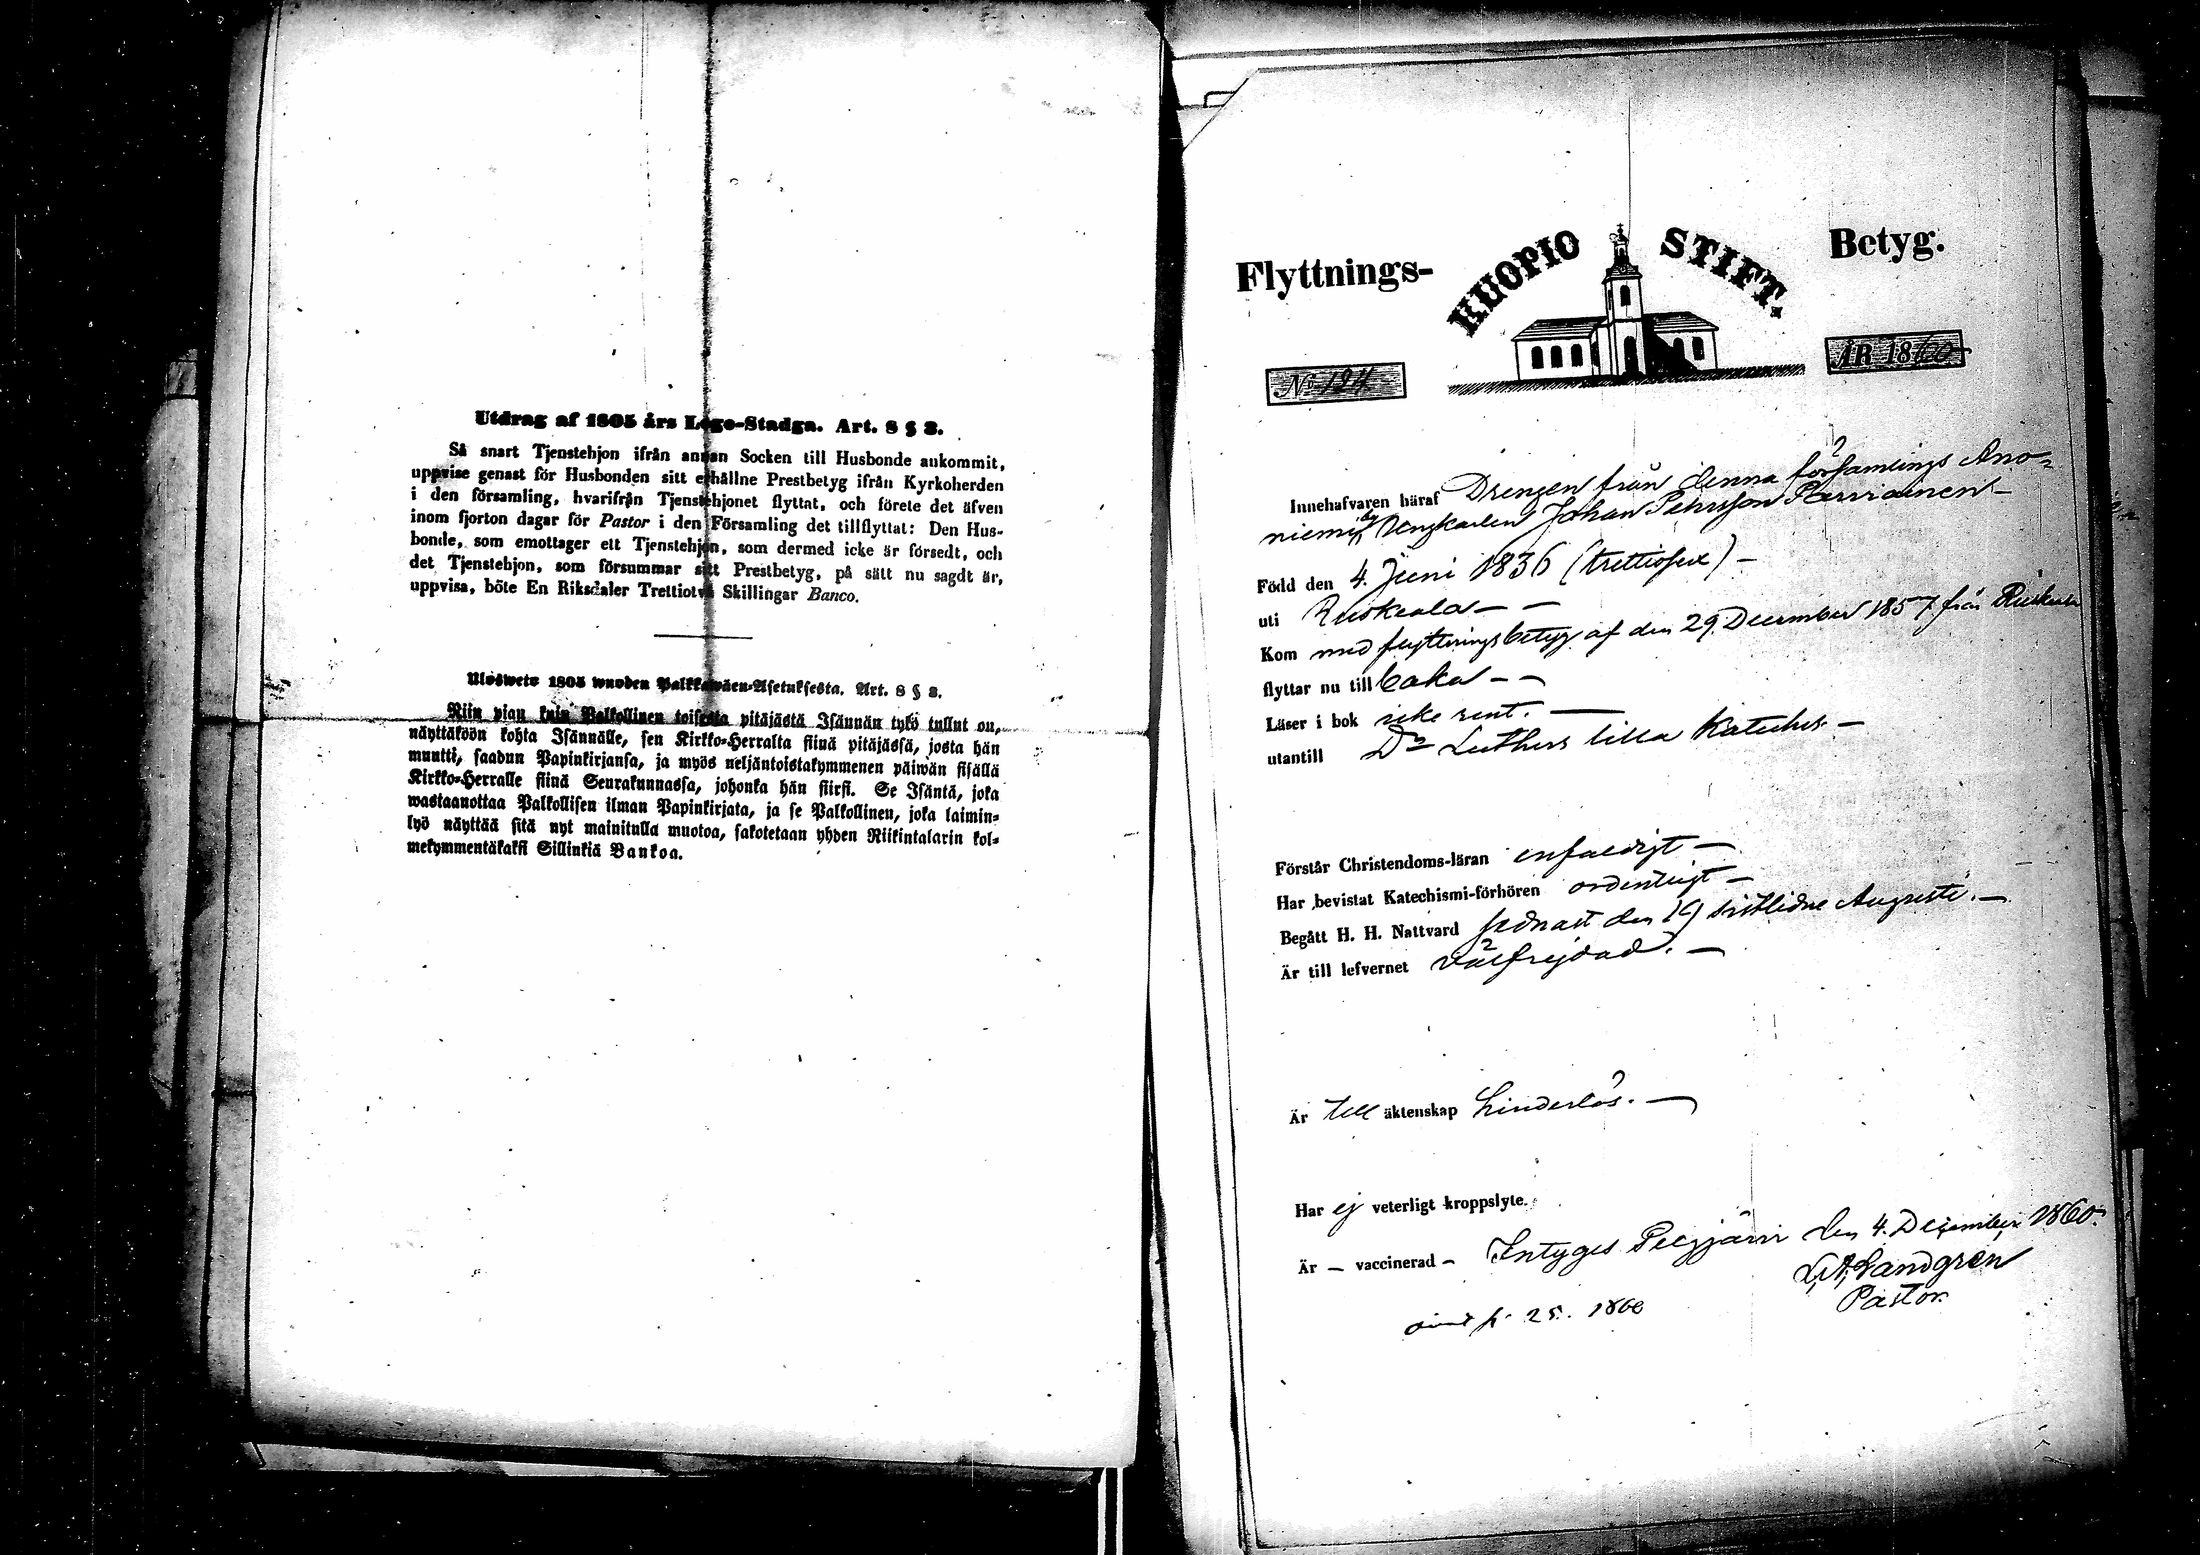 Utdrag af 1805 års Lego-Stadga. Art. 8 § 8.
Så snart Tjenstehjon ifrån annan Socken till Husbonde ankommit,
uppvise genast för Husbonden sitt erhållne Prestbetyg ifrån Kyrkoherden
i den församling, hvarifrån Tjenstehjonet flyttat, och förete det äfven
inom fjorton dagar för Pastor i den Församling det tillflyttat: Den Hus-
bonde, som emottager ett Tjenstehjon, som dermed icke är försedt, och
det Tjenstehjon, som försummar sitt Prestbetyg, på sätt nu sagdt är,
uppvisa, böte En Riksdaler Trettiotvå Skillingar Banco.
Ulosweto 1805 wuoden Palkkawäen-Asetuksesta. Art. 8 § 8.
Niin pian kuin Palkollinen toisesta pitäjästä Isännän tykö tullut on,
näyttäköön kohta Isännälle, sen Kirkko-Herralta siinä pitäjässä, josta hän
muutti, saadun Papinkirjansa, ja myös neljäntoistakymmenen päiwän sisällä
Kirkko-Herralle siinä Seurakunnassa, johonka hän siirsi. Se Isäntä, joka
wastaanottaa Palkollisen ilman Papinkirjata, ja se Palkollinen, joka laimin-
lyö näyttää sitä nyt mainitulla muotoa, sakotetaan yhden Riikintalarin kol-
mekymmentäkaksi Sillinkiä Bankoa.
Flyttnings- KUOPIO STIFT. Betyg.
No 124 ÅR 1860
Innehafvaren häraf Drengen från denna församlings Ano-
niemi by Dengkarlen Johan Pehrsson Parviainen -
Född den 4. Juni 1836 (trettiosex) -
uti Ruskeala - -
Kom med flyttningsbetyg af den 29. December 1857 från Ruskeala
flyttar nu till baka - -
Läser i bok icke rent. -
utantill Dr Luthers lilla Kateches -
Förstår Christendoms-läran enfaldigt -
Har bevistat Katechismi-förhören ordentligt -
Begått H. H. Nattvard sednast den 19 sistlidne Augusti. -
Är till lefvernet välfrejdad. -
Är till äktenskap hinderlös. -
Har ej veterligt kroppslyte.
Är - vaccinerad - Intyges Pelgjärvi den 4. December 1860.
L. A. Sandgren
Pastor.
25. 1860